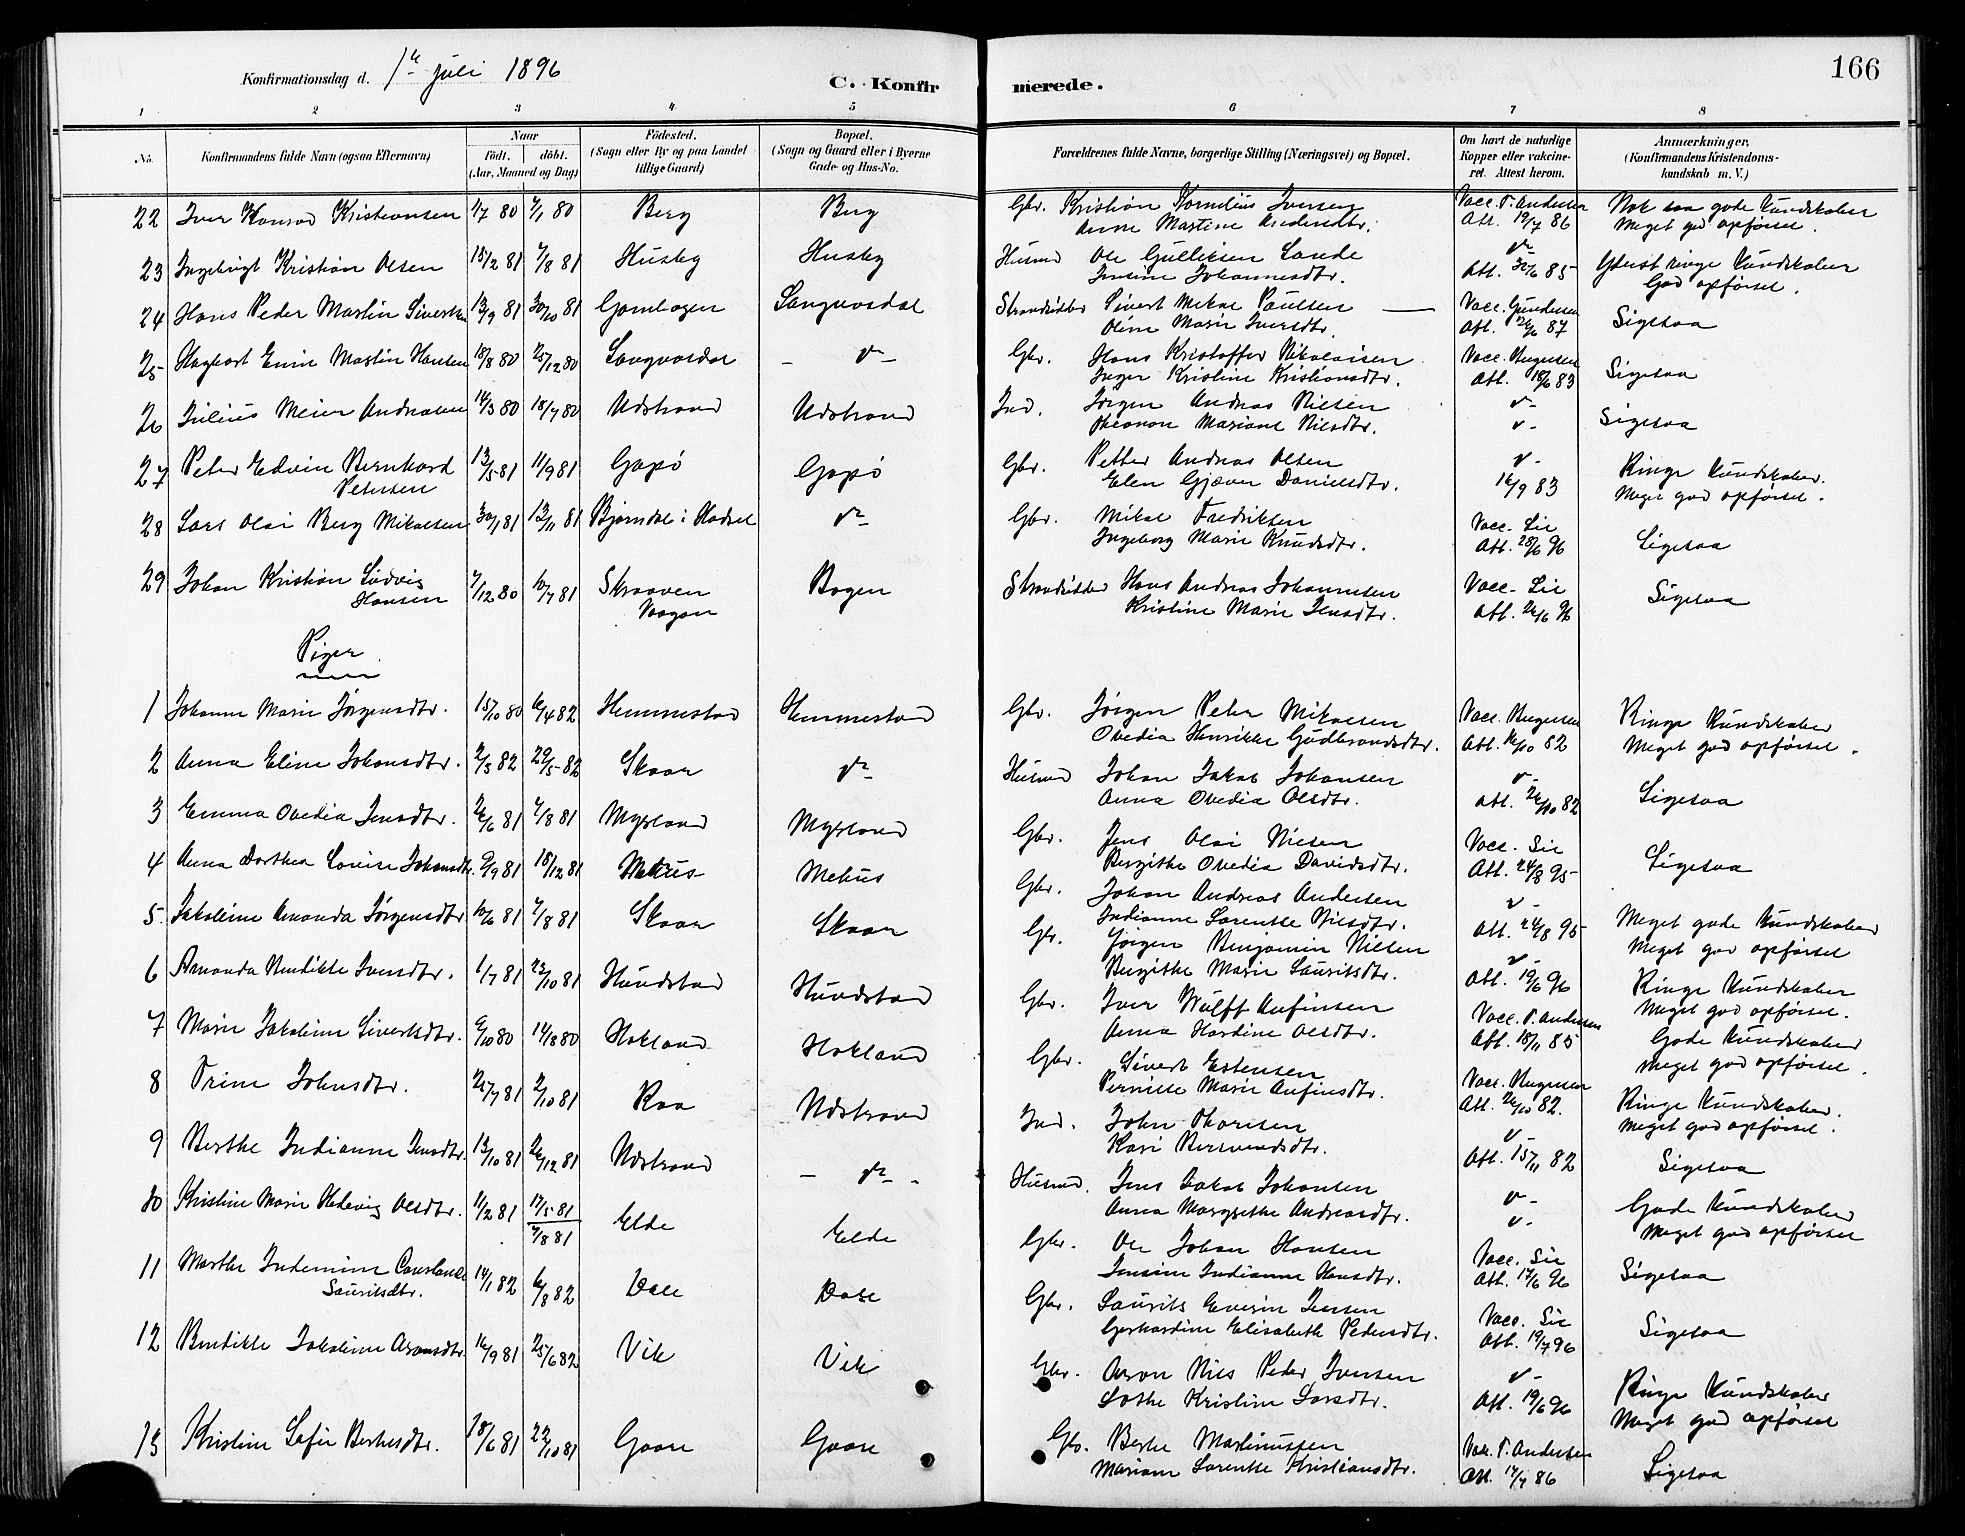 166
Konfirmationsdag d. 1ste juli 1896
C. Konfirmerede.
1 2 3 4 5 6 7 8
No. Konfirmandens fulde Navn (ogsaa Efternavn) Naar födt. döbt. (Aar, Maaned og Dag) Födested. (Sogn eller By og paa Landet tillige Gaard) Bopæl. (Sogn og Gaard eller i Byerne Gade- og Hus-No. Forældrenes fulde Navne, borgerlige Stilling (Næringsvei) og Bopæl. Om havt de naturlige Kopper eller vakcineret. Attest herom. Anmærkninger, (Konfirmandens Kristendomskundskab m. V.)
22 Iver Konrad Kristiansen 1/7 80 7/1 80 Berg Berg Gbr. Kristian Kornelius Iversen Vacc. T. Andersen Nok saa gode Kundskaber
Anne Martine Andersdtr. Att. 19/7 86 Meget god opførsel.
23 Ingebrigt Kristian Olsen 15/2 81 7/8 81 Husby Husby Husmd Ole Gulliksen Sande
Jensine Johannesdtr. Att. 30/6 85 Yderst ringe Kundskaber God opførsel.
24 Hans Peder Martin Sivertsen 13/9 81 30/10 81 Gambogen Langvasdal Strandsidder Sivert Mikal Paulsen Vacc. Gundersen
Oline Marie Iversdtr. Att. 26/6 87 Ligesaa
25 Hagbart Emil Martin Hansen 18/8 80 25/12 80 Langvasdal Gbr. Hans Kristoffer Nikolaisen Vacc. Mogensen
Inger Kristine Kristiansdtr. Att. 18/6 83 Ligesaa
26 Julius Meier Andreasen 14/3 80 18/7 80 Udstrand Udstrand Ind. Jørgen Andreas Nilsen
Mariane Nilsdtr. Ligesaa
27 Peter Edvin Bernhard Petersen 13/5 81 11/9 81 Gapø Gapø Gbr. Petter Andreas Olsen
Elen Gjæver Danielsdtr. 16/9 83 Ringe Kundskaber. Meget god opførsel.
28 Lars Olai Berg Mikalsen 30/1 81 13/11 81 Bjørndal i Hadsel Gbr. Mikal Fredriksen Vacc. Lie
Ingeborg Marie Knudsdtr. Att. 28/6 96 Ligesaa
29 Johan Kristian Ludvig Hansen 7/12 80 10/7 81 Skraaven Vaagan Bogen Strandsidder Hans Andreas Johannesen Vacc. Lie
Kristine Marie Jensdtr. Att. 26/6 96 Ligesaa
Piger
1 Johanne Marie Jørgensdtr. 15/10 80 16/4 82 Hemmestad Hemmestad Gbr. Jørgen Peter Mikalsen Vacc. Mogensen Ringe Kundskaber
Ovedia Henrikke Gudbrandsdtr. Att. 16/10 82 Meget god opførsel.
2 Anna Eline Johansdtr. 2/3 82 29/5 82 Skaar Husmd Johan Jakob Johansen
Anna Ovedia Olsdtr. Att. 26/10 82 Ligesaa
3 Emma Ovedia Jensdtr. 26/6 81 7/8 81 Myrland Myrland Gbr. Jens Olai Nilsen Vacc. Lie
Bergithe Ovedia Davidsdtr. Att. 24/8 95 Ligesaa
4 Anna Dorthea Lovise Johansdtr. 9/9 81 18/12 81 Mehus Mehus Gbr. Johan Andreas Andersen
Indianne Larentse Nilsdtr. Att. 24/8 95 Meget gode Kundskaber Meget god opførsel
5 Jakobine Amanda Jørgensdtr 10/6 81 7/8 81 Skaar Skaar Gbr. Jørgen Benjamin Nilsen
Bergithe Marie Lauritsdtr. Att. 19/6 96 Ringe Kundskaber Meget god opførsel.
6 Amanda Bendikte Iversdtr. 1/7 81 23/10 81 Hundstad Hundstad Gbr. Iver Wulff Anfinsen Vacc. T. Andersen
Anna Hardine Olsdtr. Att. 18/11 85 Gode Kundskaber Meget god opførsel.
7 Marie Jakobine Sivertsdtr. 9/10 80 14/18 80 Hokland Hokland Gbr. Sivert Estensen Vacc. Mogensen
Pernille Marie Anfinsdtr. Att. 26/10 82. Ringe Kundskaber. Meget god opførsel.
8 Trine Johnsdtr. 25/7 81 2/10 81 Raa Udstrand Ind. John Thoresen
Kari Bersvendsdtr. Att. 15/11 82 Ligesaa
9 Berthe Indianne Jensdtr. 13/10 81 26/12 81 Udstrand Husmd. Jens Jakob Johansen
Anna Margrethe Andreasdtr. Gode Kundskaber Meget god opførsel
10 Kristine Marie Hedevig Olsdtr. 11/2 81 17/5 81 7/8 81 Elde Elde Gbr. Ole Johan Hansen Vacc. Lie
Jensine Indianne Hansdtr. Att. 17/6 96 Ligesaa
11 Marthe Indemine Constance Lauritsdtr. 14/1 82 6/8 82 Dale Dale Gbr. Laurits Everin Jensen Vacc. Lie
Gerhardine Elisabeth Pedersdtr. Att. 19/7 96 Ligesaa
12 Bendikte Jakobine Aronsdtr. 16/9 81 25/6 82 Vik Vik Gbr. Aron Nils Peder Iversen
Lothe Kristine Larsdtr. Att. 19/6 96 Ringe Kundskaber Meget god opførsel
13 Kristine Sofie Berhesdtr. 18/6 81 22/10 81 Gaare Gaare Gbr. Berhe Martinussen Vacc. T. Andersen
Mariane Larentse Kristiansdtr. Att. 17/7 86 Ligesaa